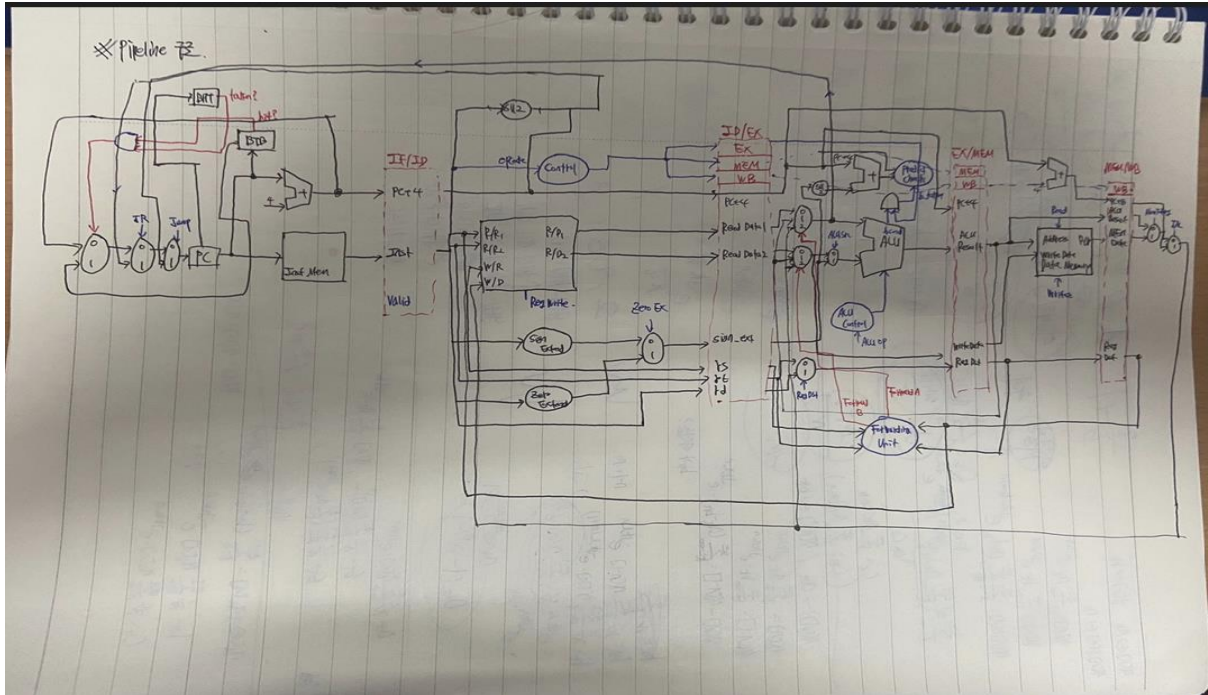 ※ Pipeline 구조.
BHT
taken?
hit?
BTB
JR
Jump
0
1
PC
4
+
Inst Mem
IF/ID
PC+4
Inst
Valid
Sll2
opcode
Control
R/R1
R/R2
W/R
W/D
R/D1
R/D2
RegWrite
Sign Extend
Zero Extend
Zero Ex
0
1
ID/EX
EX
MEM
WB
PC+4
Read Data1
Read Data2
sign_ext
rs
rt
rd
0
1
2
ALUSrc
+
ALU
ALU Control
ALU op
0
1
Reg Dst
Forward B
Forward A
Forwarding Unit
EX/MEM
MEM
WB
PC+4
ALU Result
Write Data
Reg Dst
+
Read
Address
Write Data
Data Memory
Write
MEM/WB
WB
Mem Data
Reg Dst